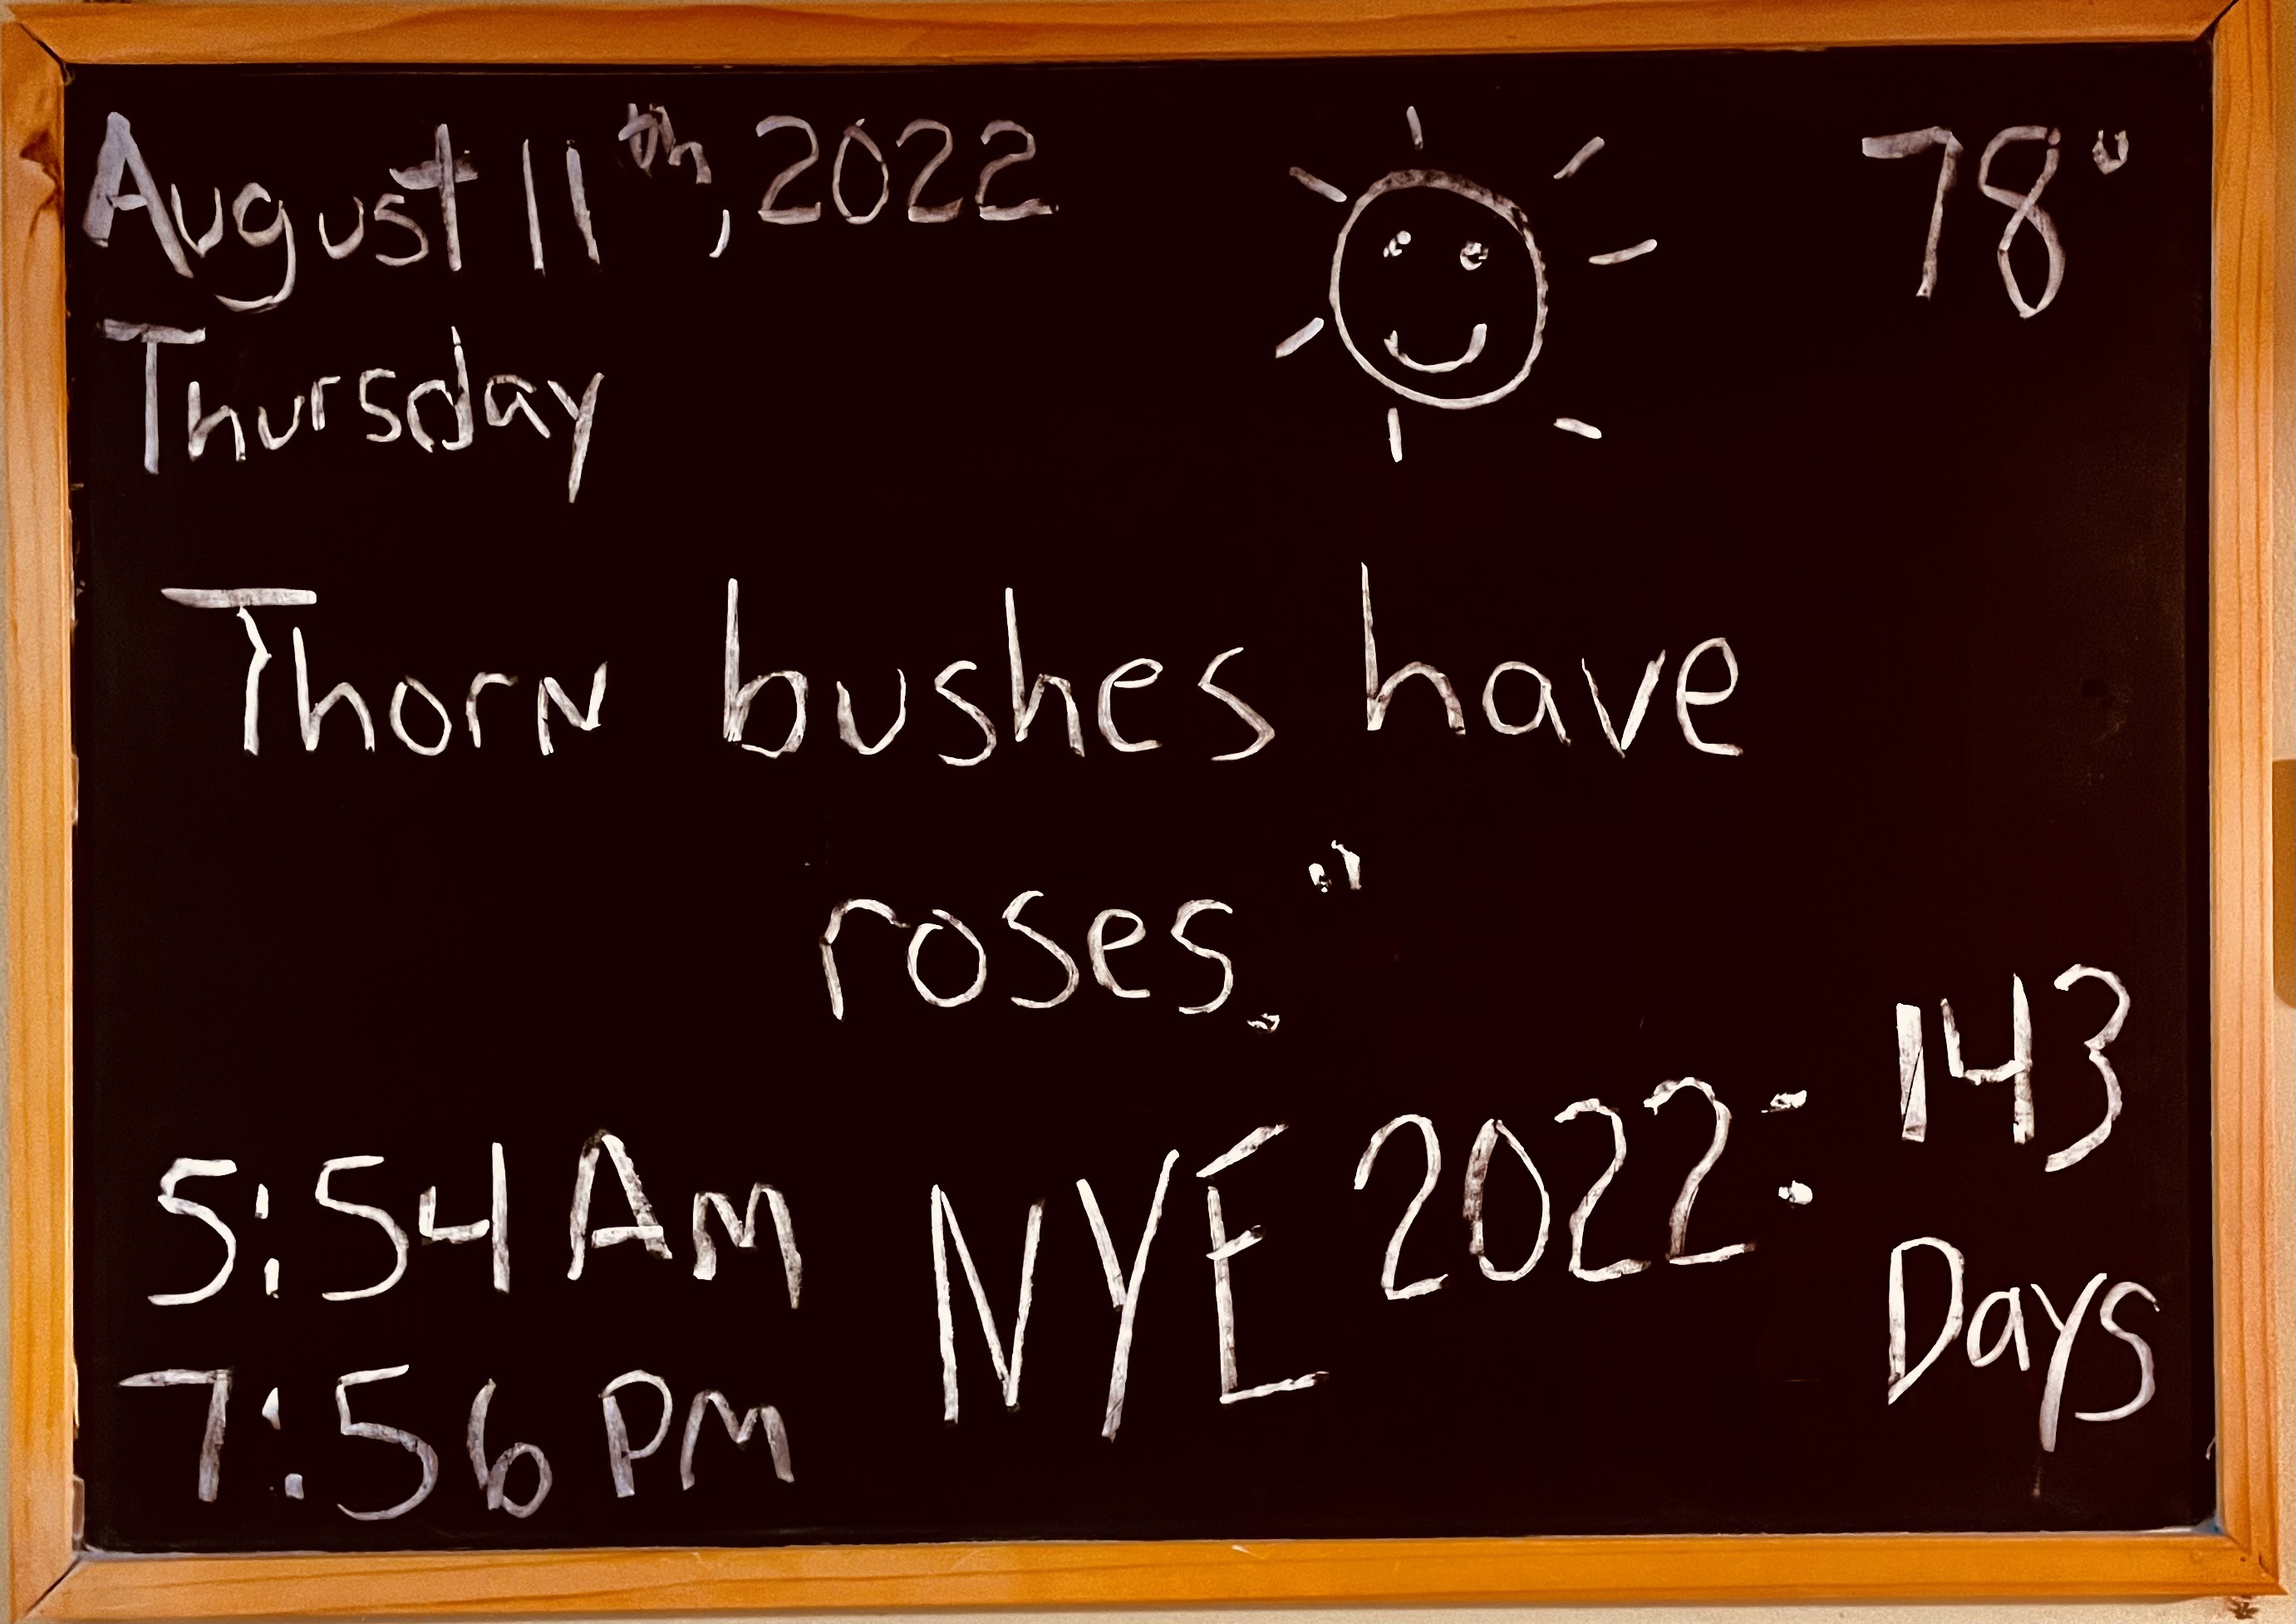 August 11th, 2022
78°
Thursday
Thorn bushes have
roses."
5:54 AM
7:56 PM
NYE 2022:
143
Days